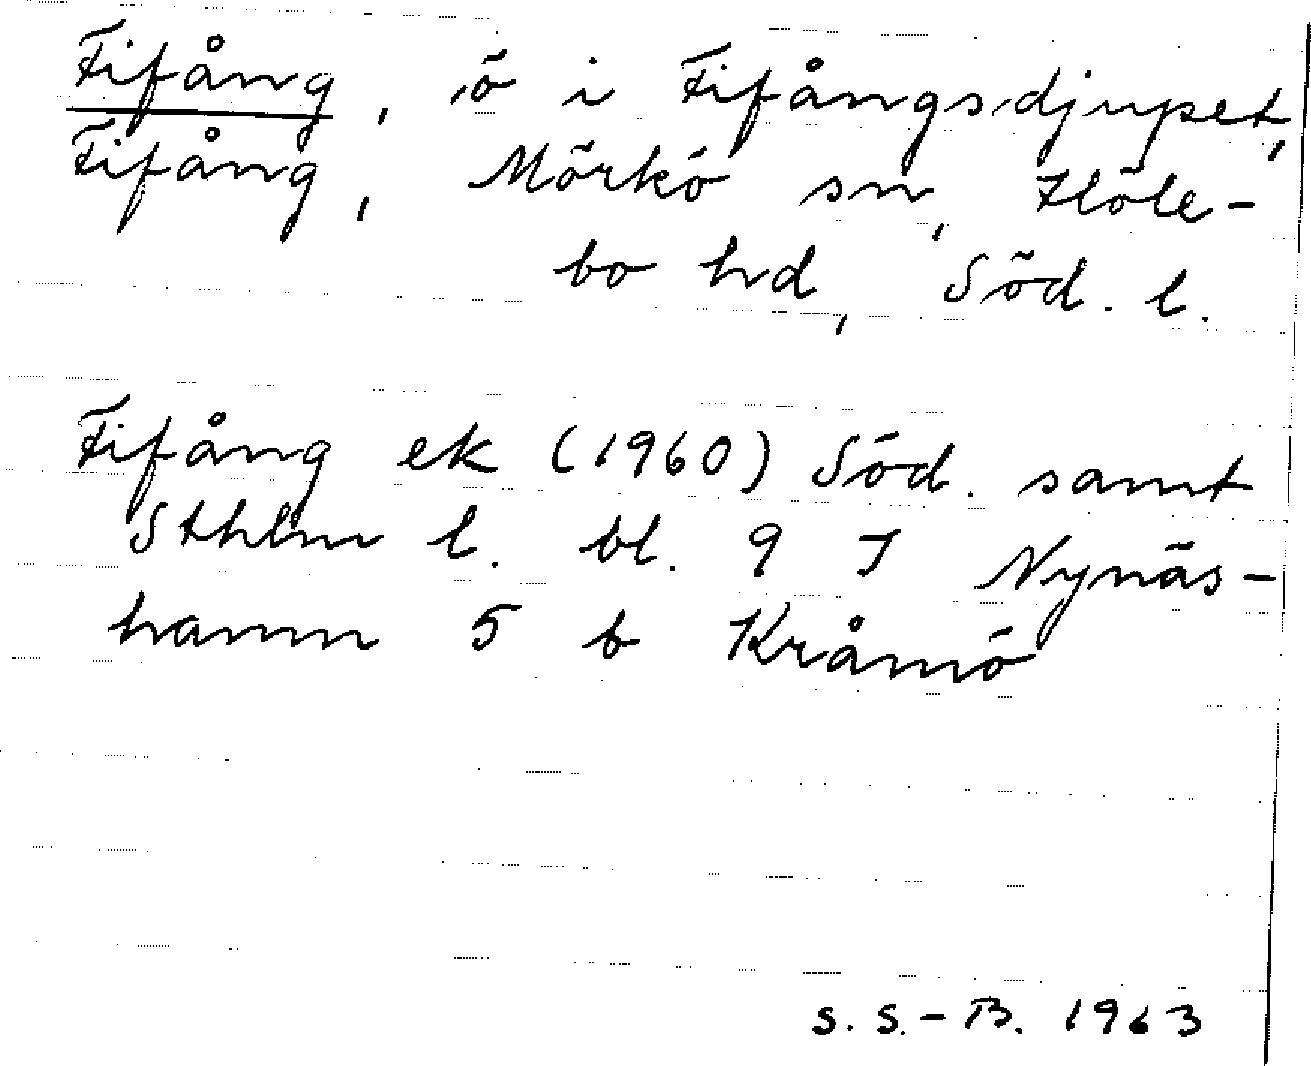 Fifång, ö i Fifångsdjupet,
Fifång, Mörkö sn, Höle-
bo hd, Söd. l.
Fifång ek (1960) Söd. samt
Sthlm l. bl. 9 I Nynäs-
hamn 5 b Kråmö
S. S.-B. 1963